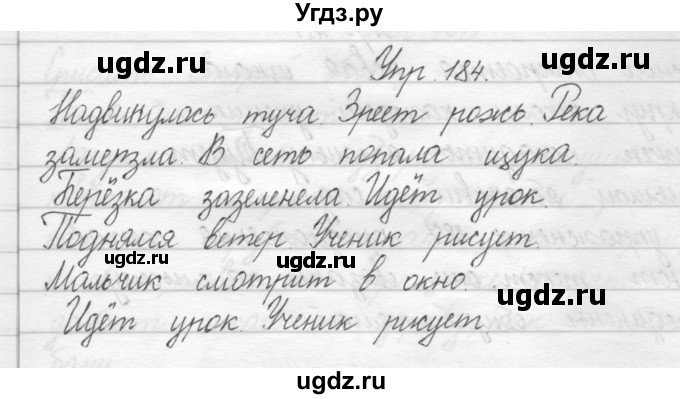 Угдз.ру
ugdz.ru ugdz.ru
Упр. 184.
Надвинулась туча. Зреет рожь. Река
замерзла. В сеть попала щука.
ugdz.ru
Берёзка зазеленела. Идёт урок.
Поднялся ветер. Ученик рисует.
ugdz.ru ugdz.ru
Мальчик смотрит в окно.
Идёт урок. Ученик рисует.
ugdz.ru
ugdz.ru